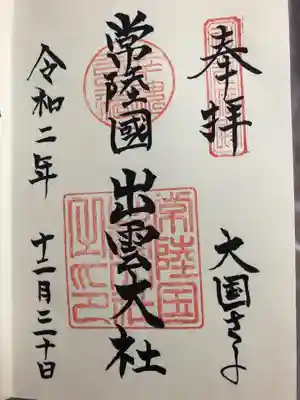 奉拝
大国さま
常陸國出雲大社
令和二年十二月二十日